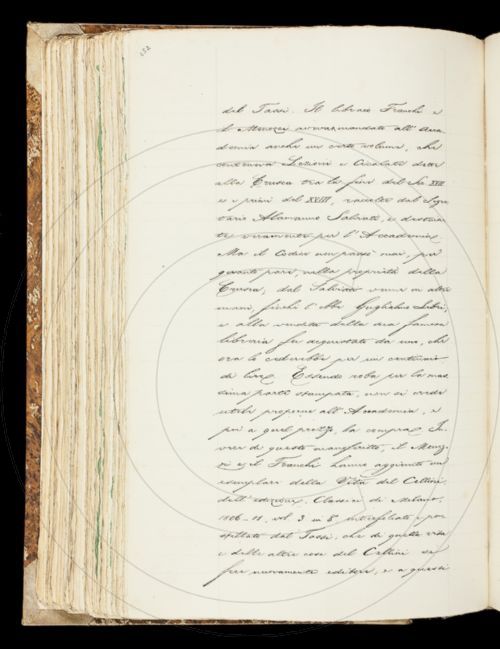 232
del Tassi. Il libraio Franchi e
il Menozzi avevan mandato all'Acca
demia anche un certo volume, che
conteneva Lezioni e Cicalate dette
alla Crusca tra la fine del Sec. XVII
e i primi del XVIII, raccolte dal Segre
tario Alamanno Salviati, e destina
te veramente per l'Accademia.
Ma il Codice non passò mai, per
quanto pare, nella proprietà della
Crusca; dal Salviati venne in altre
mani, finchè l'Ab. Guglielmo Libri,
e alla vendita della sua famosa
libreria fu acquistato da uno, che
ora lo cederebbe per un centinaio
di lire. Essendo roba per la mas
sima parte stampata, non si crede
utile proporre all'Accademia, e
poi a quel prezzo, la compra. In
vece di questo manoscritto, il Menoz
zi e il Franchi hanno aggiunto un
esemplare della Vita del Cellini
dell'edizione Classici di Milano,
1806-11, vol. 3 in 8º interfoliato e po
stillato dal Tassi, che di quella vita
e delle altre cose del Cellini si
fece nuovamente editore, e a questi